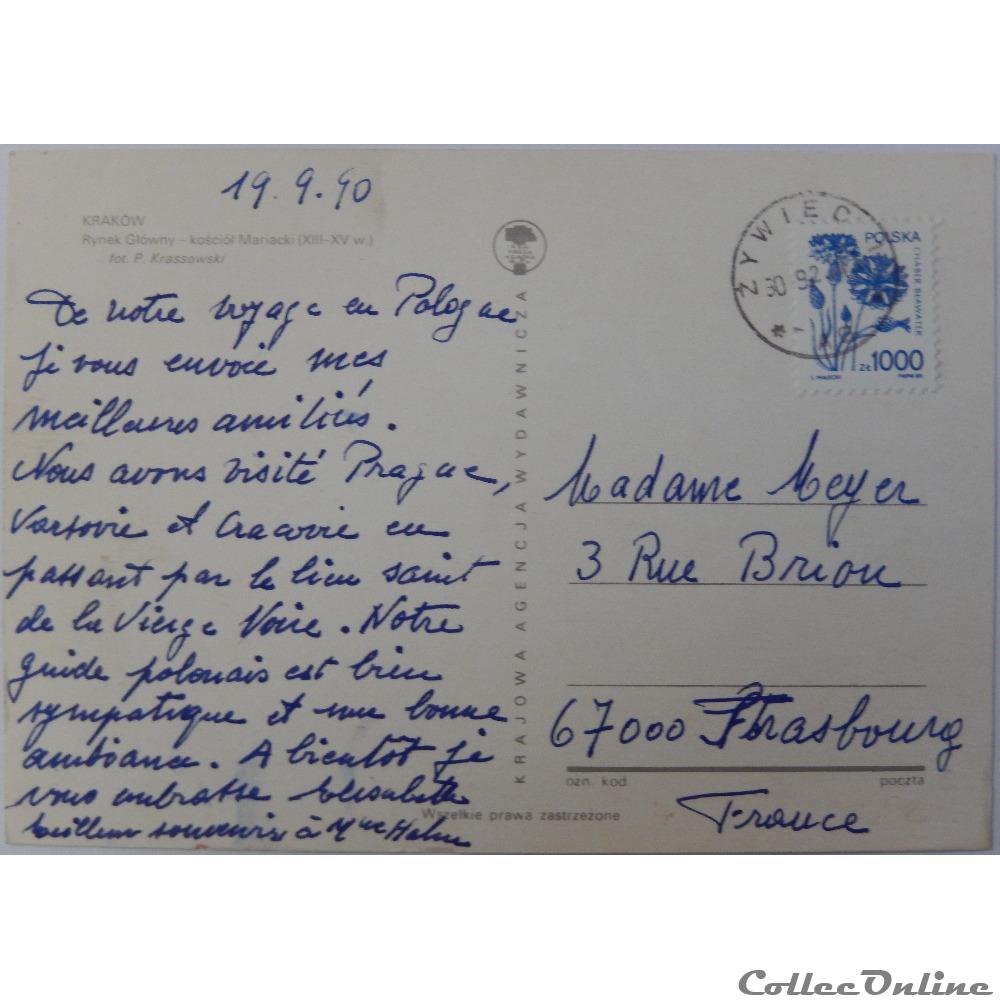 19.9.90
KRAKÓW
Rynek Główny – kościół Mariacki (XIII–XV w.)
fot. P. Krassowski
De notre voyage en Pologne
je vous envoie mes
meilleures amitiés.
Nous avons visité Prague,
Varsovie et Cracovie en
passant par le lieu saint
de la Vierge Noire. Notre
guide polonais est bien
sympatique et une bonne
ambiance. A bientôt je
vous embrasse Elisabeth
Meilleur souvenir à Mme Hahn
KRAJOWA AGENCJA WYDAWNICZA
Wszelkie prawa zastrzeżone
ŻYWIEC
30 92
POLSKA
CHABER BŁAWATEK
ZŁ 1000
Madame Meyer
3 Rue Brion
67000 Strasbourg
ozn. kod poczta
France
CollecOnline